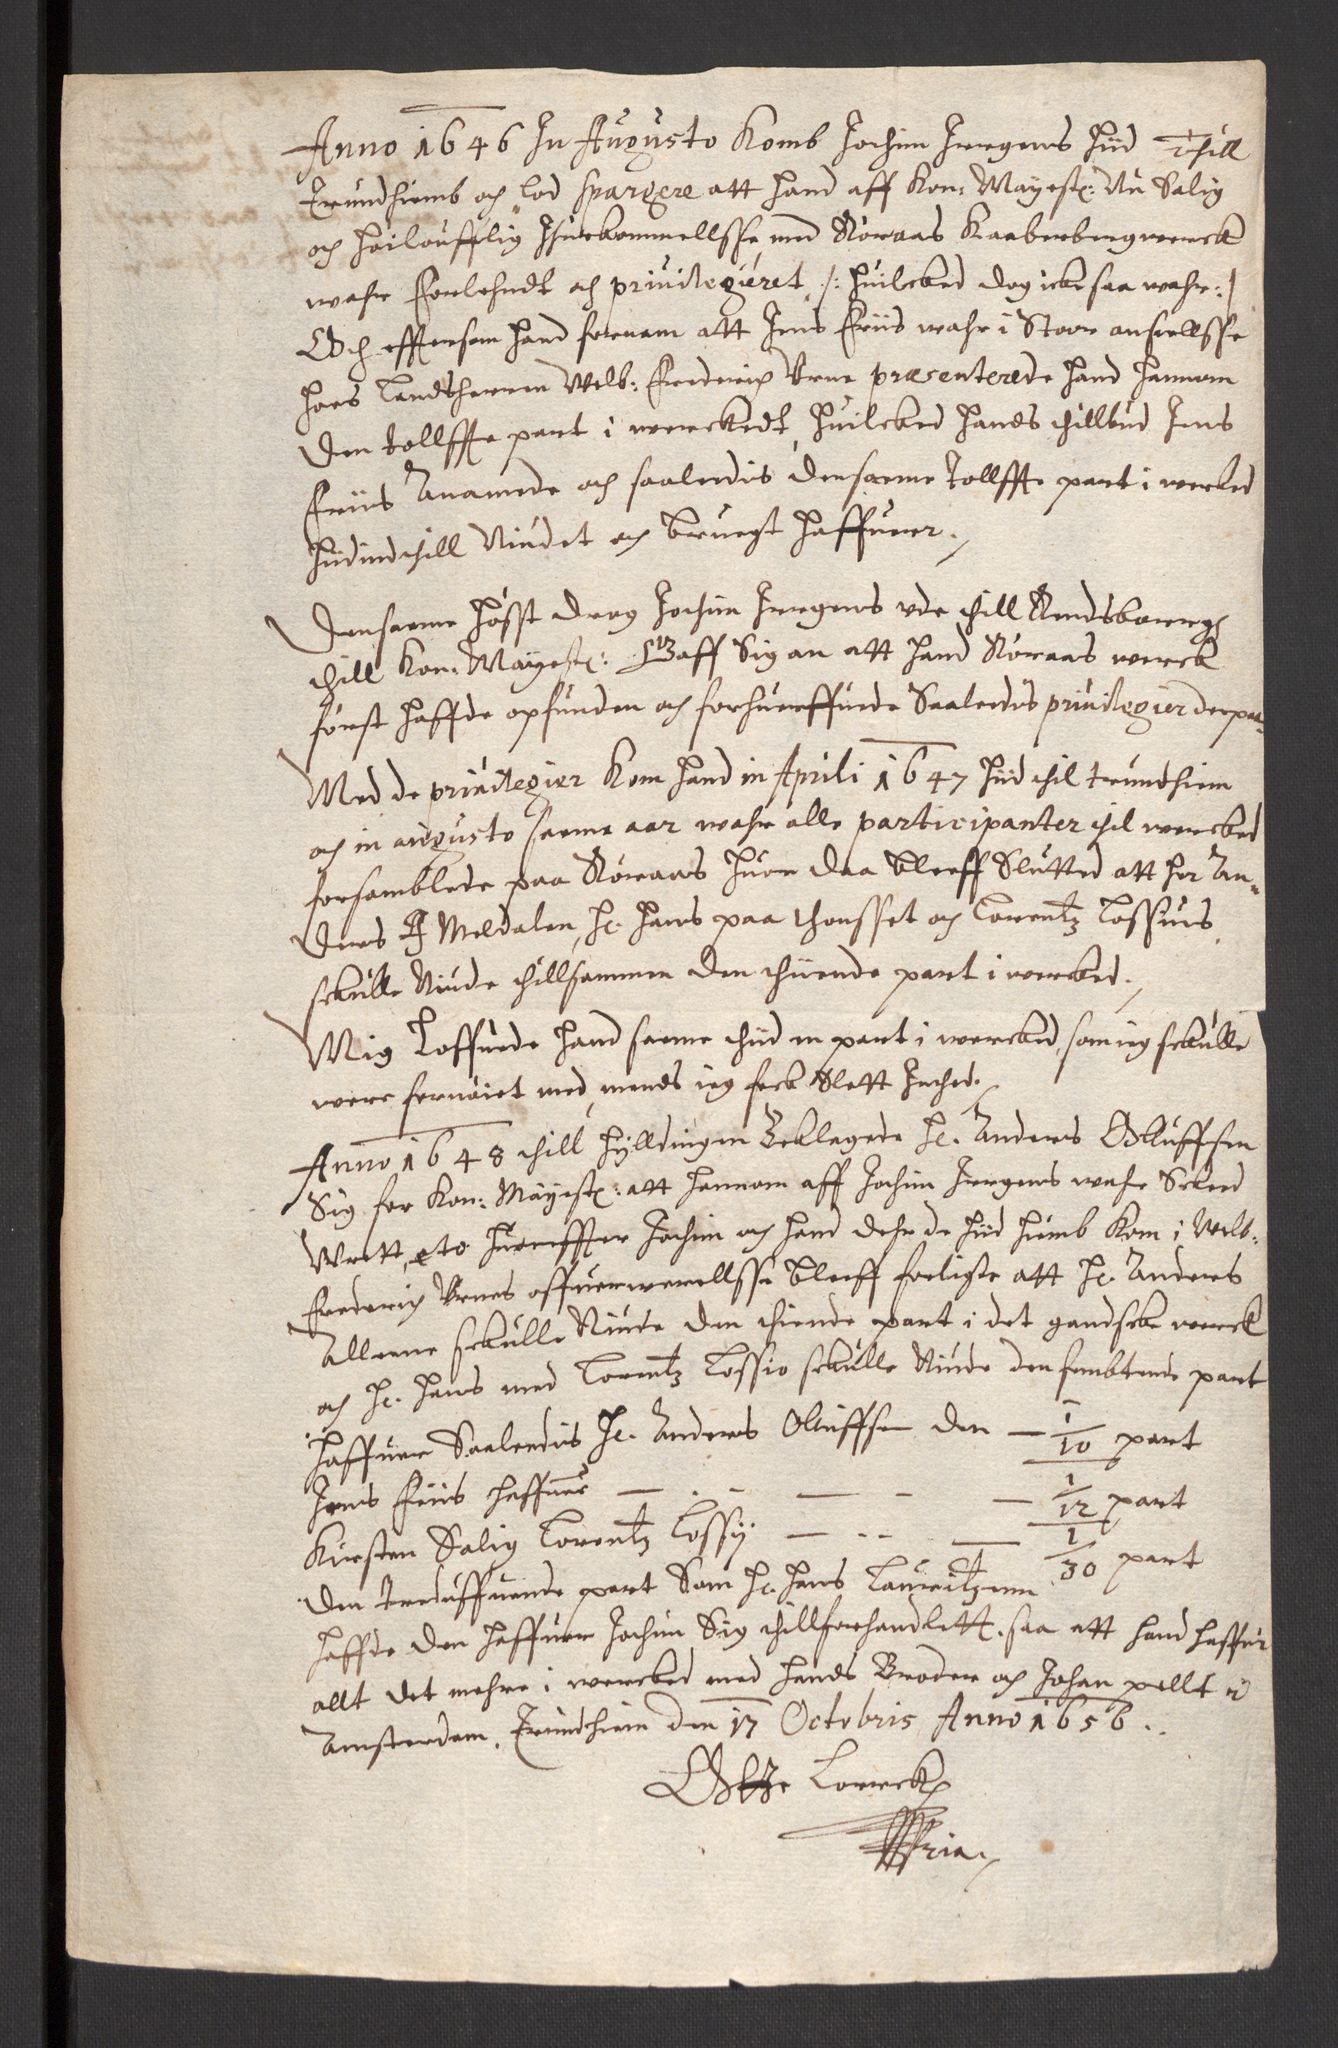 Anno 1646 In Augusto Komb Jochim Irgens hiid Thill
Trundhiemb och lod spargere att hand aff Kon: Mayest: Nu Salig
och Höiloufflig Ihukommellsse med Røraas Kaaberbergwerck
wahr forlehndt och privilegieret /: huilcked dog icke saa wahr :/
Och effterson hand fornam att Jens Friis wahr i Stoor ansiellsse
hoes Landsherren Welb: Frederich Urne præsenterede hand hannom
den tollffte part i werckedt, huilcked hands thillbud Jens
Friis Anamede och saaledis densamme Tollffte part i wercked
hiidindthill Niudet och brugt haffuer.
Densamme Høst drog Jochim Irgens ude thill Rendsborrig
thill Kon: Mayest: Gaff Sig an att hand Røraas werck
først haffde opfunden och forhuerffuede Saaledis privilegier derpaa.
Med de privilegier Kom hand in Aprili 1647 hiid thil trundhiem
och in augusto samme aar wahr alle participanter thil wercked
forsamblede paa Røraas huor daa bleff Sluttet att her An-
ders i Meldalen, Hr. Hans paa thonsset och Lorentz Lossius
skulle Niude thillsammen den thiende part i wercked.
Mig Loffuede hand samme thid en part i wercked, som ieg skulle
were fornøiet med, mends ieg feck Slett Inthed.
Anno 1648 thill Hylldingen Beklagede Hr. Anders Oluffsen
Sig for Kon: Mayest: att hannom aff Jochim Irgens wahr Skeed
Wrett, etc huoreffter Jochim och hand dehr de hiid hiemb Kom i Welb:
Frederich Urnes offuerwerellsse bleff forligte att Hr. Anders
Alleene skulle Niude den thiende part i det gandske werck
och Hr. Hans med Lorentz Lossio skulle Niude den fembtende part
haffuer Saaledis Hr. Anders Oluffsen den — 1/10 part
Jens Friis haffuer — . - — - — 1/12 part
Kirsten Salig Lorentz Lossy — .. — 1/30 part
Den trediuffuende part Som Hr. Hans Lauritzenn
haffde den haffuer Jochim Sig thillforhandlett. saa att hand haffuer
allt det mehre i wercked med hands Broder och Johan pellt i
Amsterdam. Trundhiem den 17 Octobris Anno 1656.
Otte Lorrick